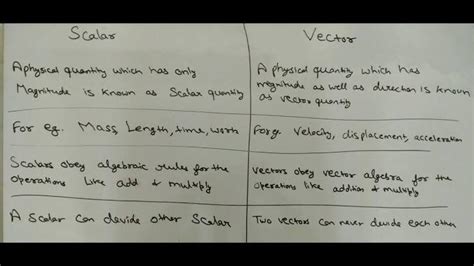 Scalar
Vector
A physical quantity which has only
Magnitude is known as Scalar quantity
A physical quantity which has
magnitude as well as direction is known
as vector quantity
For eg. Mass, Length, time, work
For eg. Velocity, displacement, acceleration
Scalars obey algebraic rules for the
operations like add & multiply
vectors obey vector algebra for the
operations like addition & multiply
A Scalar can devide other Scalar
Two vectors can never devide each other